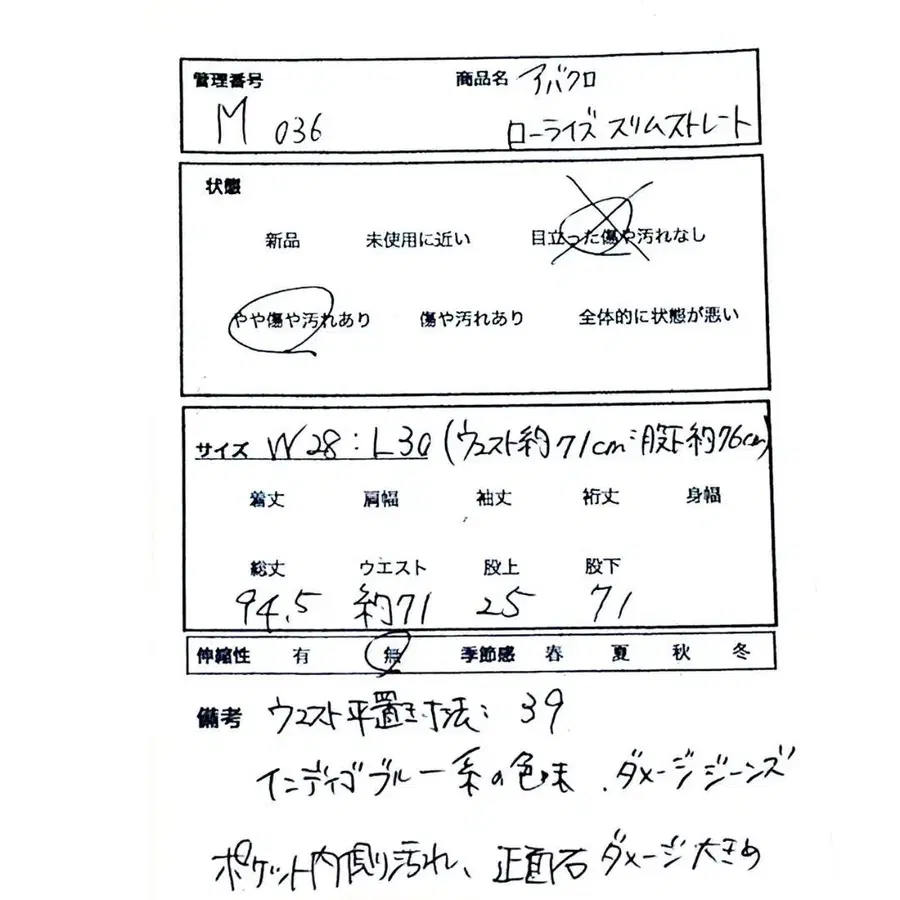 管理番号 商品名 アバクロ
M 036 ローライズ スリムストレート
状態
新品 未使用に近い 目立った傷や汚れなし
やや傷や汚れあり 傷や汚れあり 全体的に状態が悪い
サイズ W28:L30 (ウエスト約71cm:股下約76cm)
着丈 肩幅 袖丈 裄丈 身幅
総丈 ウエスト 股上 股下
94.5 約71 25 71
伸縮性 有 無 季節感 春 夏 秋 冬
備考 ウエスト平置き寸法: 39
インディゴブルー系の色味.ダメージジーンズ
ポケット内側り汚れ、正面右ダメージ大きめ